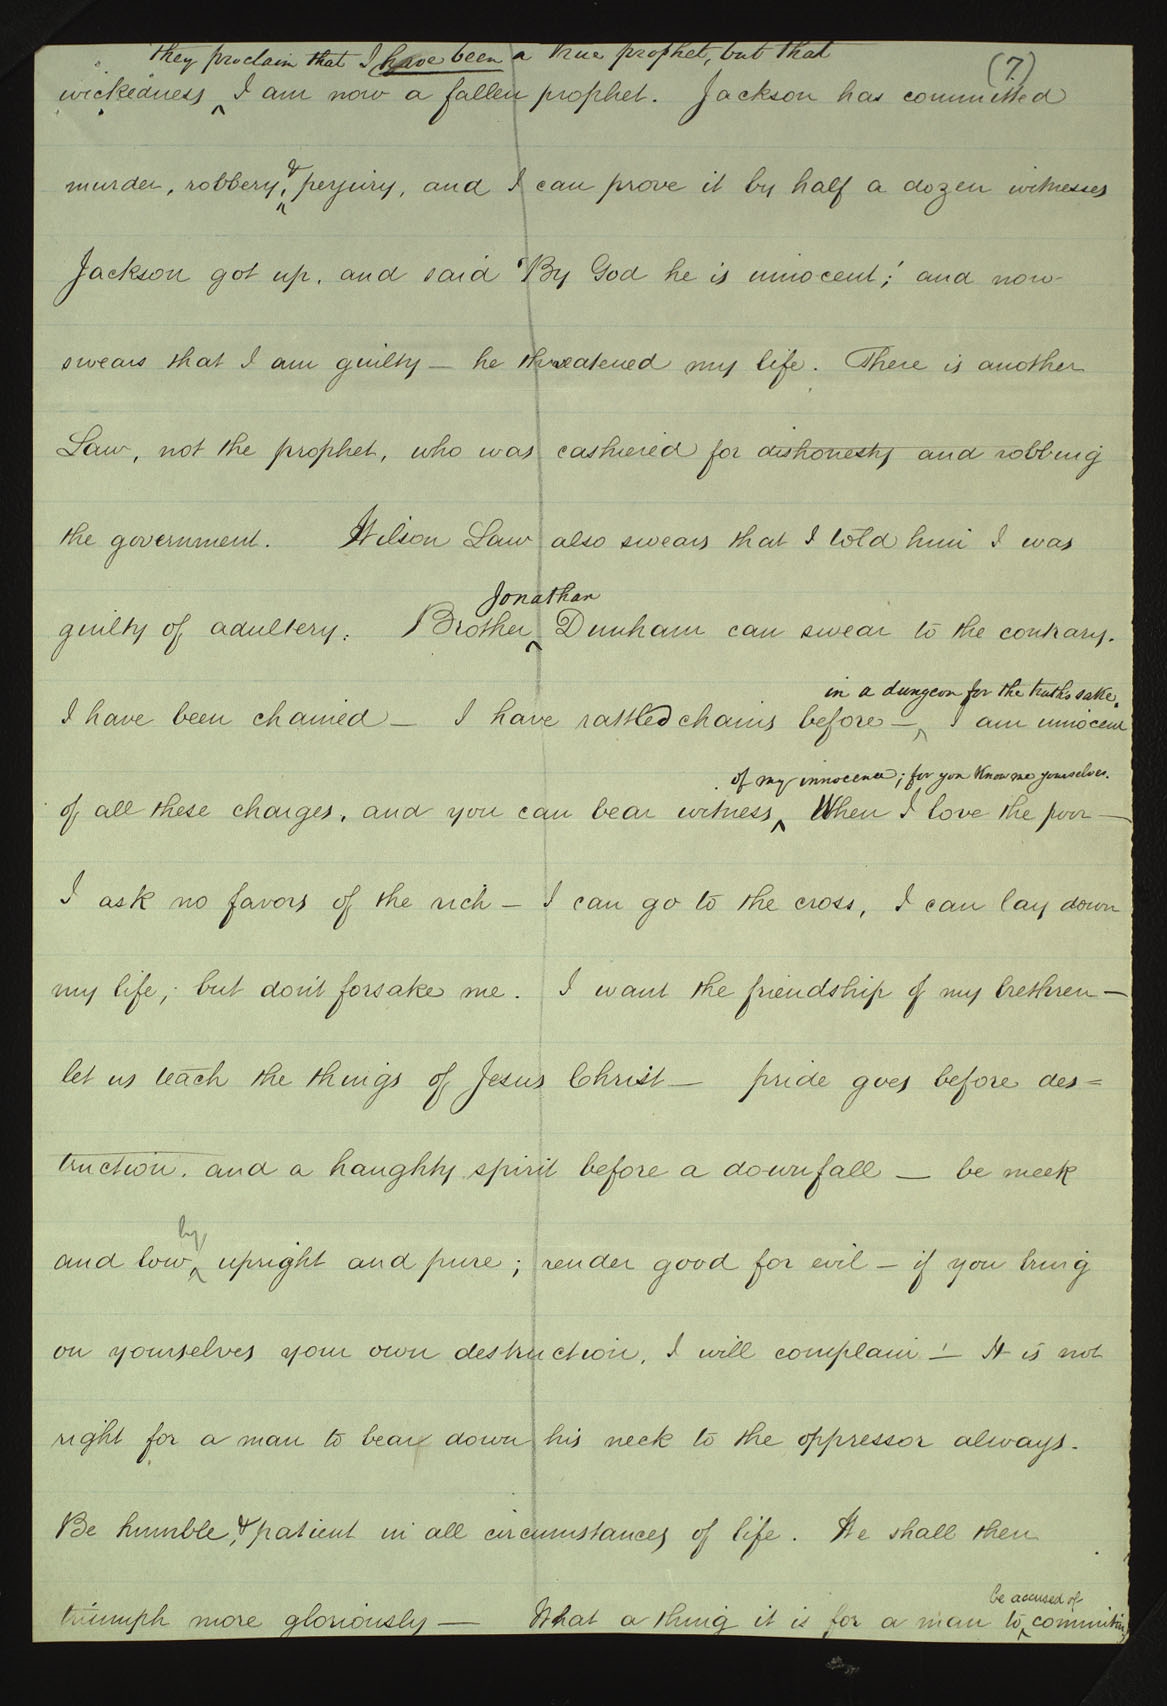 they proclaim that I have been a true prophet, but that
(7.)
wickedness ^ I am now a fallen prophet. Jackson has committed
&
murder, robbery, ^ perjury, and I can prove it by half a dozen witnesses
Jackson got up, and said 'By God he is innocent;' and now
swears that I am guilty — he threatened my life. There is another
Law, not the prophet, who was cashiered for dishonesty and robbing
the government. Wilson Law also swears that I told him I was
Jonathan
guilty of adultery. Brother ^ Dunham can swear to the contrary.
in a dungeon for the truths sake.
I have been chained — I have rattled chains before — ^ I am innocent
of my innocence; for you know me yourselves.
of all these charges, and you can bear witness ^ When I love the poor —
I ask no favors of the rich — I can go to the cross, I can lay down
my life; but don't forsake me. I want the friendship of my brethren —
let us teach the things of Jesus Christ — pride goes before des=
truction, and a haughty spirit before a downfall — be meek
ly,
and low ^ upright and pure; render good for evil — if you bring
on yourselves your own destruction, I will complain! — It is not
right for a man to bear down his neck to the oppressor always.
Be humble, & patient in all circumstances of life. We shall then
be accused of
triumph more gloriously — What a thing it is for a man to ^ committing